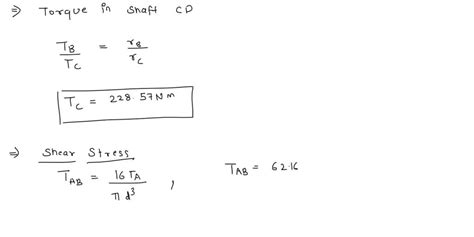 ⇒ Torque in shaft CD
T_B / T_C = r_B / r_C
T_C = 228.57 Nm
⇒ Shear Stress
T_AB = 16 T_A / π d³ , T_AB = 62.16